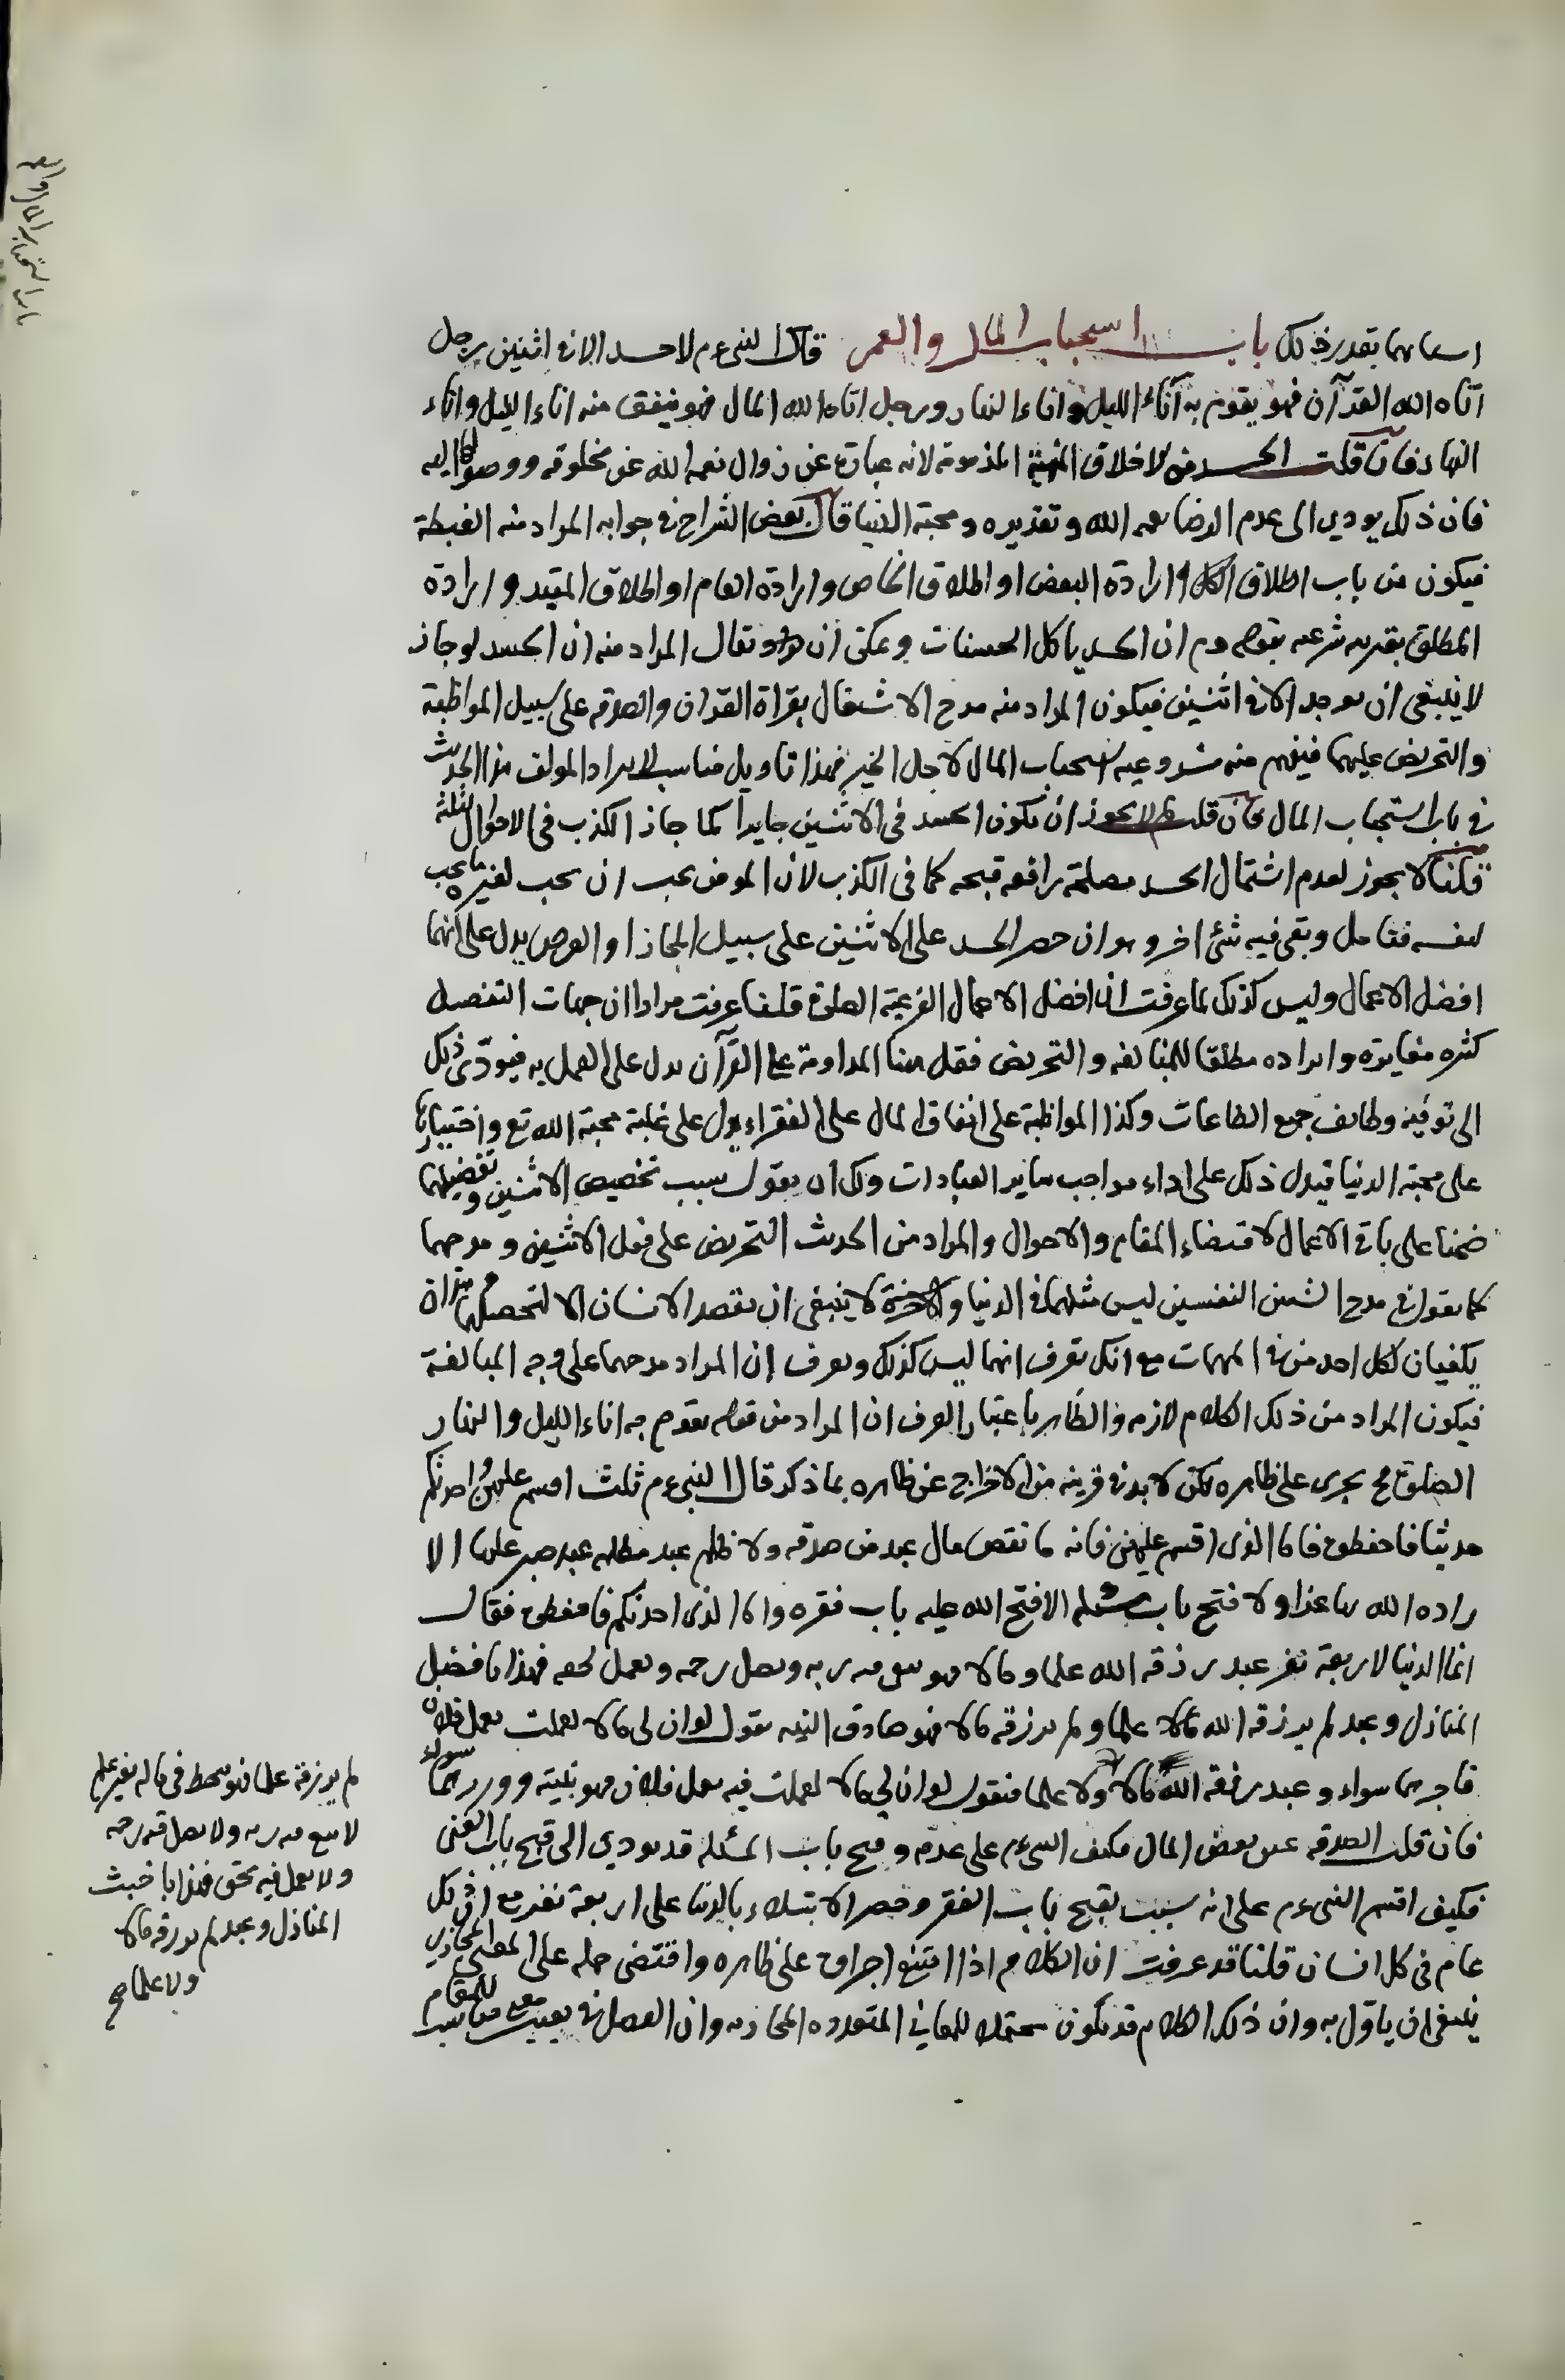 اسبابهما بقدر ذلك باب استحباب المال والعمر قال النبي عم لا حسد الا في اثنين رجل
اتاه الله القرآن فهو يقوم به آناء الليل واناء النهار ورجل اتاه الله المال فهو ينفق منه اناء الليل واناء
النهار فان قلت الحسد من الاخلاق المذمومة لانه عبارة عن زوال نعمة الله عن مخلوقه ووصولها اليه
فان ذلك يودي الى عدم الرضا بقسمة الله وتقديره ومحبة الدنيا قال بعض الشراح في جوابه المراد منه الغبطة
فيكون من باب اطلاق الكل وارادة البعض او اطلاق الخاص وارادة العام او اطلاق المقيد وارادة
المطلق بقرينة شرعية بقوله عم ان الحسد ياكل الحسنات ويمكن ان يقال المراد منه ان الحسد لو جاز
لا ينبغي ان يوجد الا في اثنين فيكون المراد منه مدح الاشتغال بقراة القران والصدقه على سبيل المواظبة
والتحريض عليهما فيفهم منه مشروعية استحباب المال لاجل الخير فهذا تاويل مناسب لايراد المولف هذا الحديث
في باب استحباب المال فان قلت لم لا يجوز ان يكون الحسد في الاثنين جايزا كما جاز الكذب في الاحوال الثلثة
قلنا لا يجوز لعدم اشتمال الحسد مصلحة رافعة قبحه كما في الكذب لان المومن يجب ان يحب لغيره ما يحب
لنفسه فتامل وبقي فيه شئ اخر وهو ان حصر الحسد على الاثنين على سبيل المجاز او الفرض يدل على انهما
افضل الاعمال وليس كذلك لما عرفت ان افضل الاعمال الفرعية الصلوة قلنا عرفت مرارا ان جهات التفضيل
كثيره متغايرة وايراده مطلقا للمبالغه والتحريض فقل هنا المداومة على القرآن يدل على العمل به فيودّى ذلك
الى توفية وظايف جميع الطاعات وكذا المواظبة على انفاق المال على الفقراء يدل على غلبة محبة الله تع واختيارها
على محبة الدنيا فيدل ذلك على اداء مواجب ساير العبادات ولك ان يقول بسبب تخصيص الاثنين وتفضيلهما
ضمنا على باقي الاعمال لاقتضاء المقام والاحوال والمراد من الحديث التحريض على فعل الاثنين ومدحهما
كما يقول في مدح الشيئين النفيسين ليس مثلهما في الدنيا والاخرة لا ينبغي ان يقصد الانسان الا لتحصيلهما
يكفيان لكل احد من في المهمات مع انك تعرف انهما ليس كذلك ويعرف ان المراد مدحهما على وجه المبالغة
فيكون المراد من ذلك الكلام لازمه والظاهر باعتبار العرف ان المراد من قوله يقوم به اناء الليل والنهار
الصلوة يجرى على ظاهره لكن لا بد في قرينه من الاخراج عن ظاهره بما ذكر قال النبي عم ثلث اقسم عليهن واحدثكم
حديثا فاحفظوه فاما الذي اقسم عليهن فانه ما نقص مال عبد من صدقه ولا ظلم عبد مظلمه عبد صبر عليها الا
زاده الله بها عزا ولا فتح باب مسئلة الا فتح الله عليه باب فقره واما الذي احدثكم فاحفظوه فقال
انما الدنيا لاربعة نفر عبد رزقه الله علما ومالا فهو يتقى فيه ربه ويصل رحمه ويعمل لحقه فهذا بافضل
المنازل وعبد لم يرزقه الله مالا علما ولم يرزقه مالا فهو صادق النيه يقول لو ان لى مالا لعملت بعمل فلان
فاجرهما سواء وعبد رزقه الله مالا ولا علما فيقول لو ان لي مالا لعملت فيه بعمل فلان فهو بنيته ووزرهما سواء
فان قلت الصدقه عين بعض المال فكيف النبي عم على عدمه وفتح باب المسئله قد يودي الى فتح باب الغنى
فكيف اقسم النبي عم على انه سبب يفتح باب الفقر وحصر الابتلاء بالدنيا على اربعة نفر مع ان ذلك
عام في كل انسان قلنا قد عرفت ان الكلام اذا امتنع اجراوه على ظاهره واقتضى حمله على المعنى المجازي
ينبغي ان ياوّل به وان ذلك الكلام قد يكون محتملا للمعاني المتعدده المجازيه وان الفصل في تعيين معنى مناسب للمقام
لم يرزقه علما فهو يتخبط في ماله بغير علم
لا يتقى فيه ربه ولا يصل فيه رحمه
ولا يعمل فيه بحق فهذا باخبث
المنازل وعبد لم يرزقه مالا
ولا علما صح